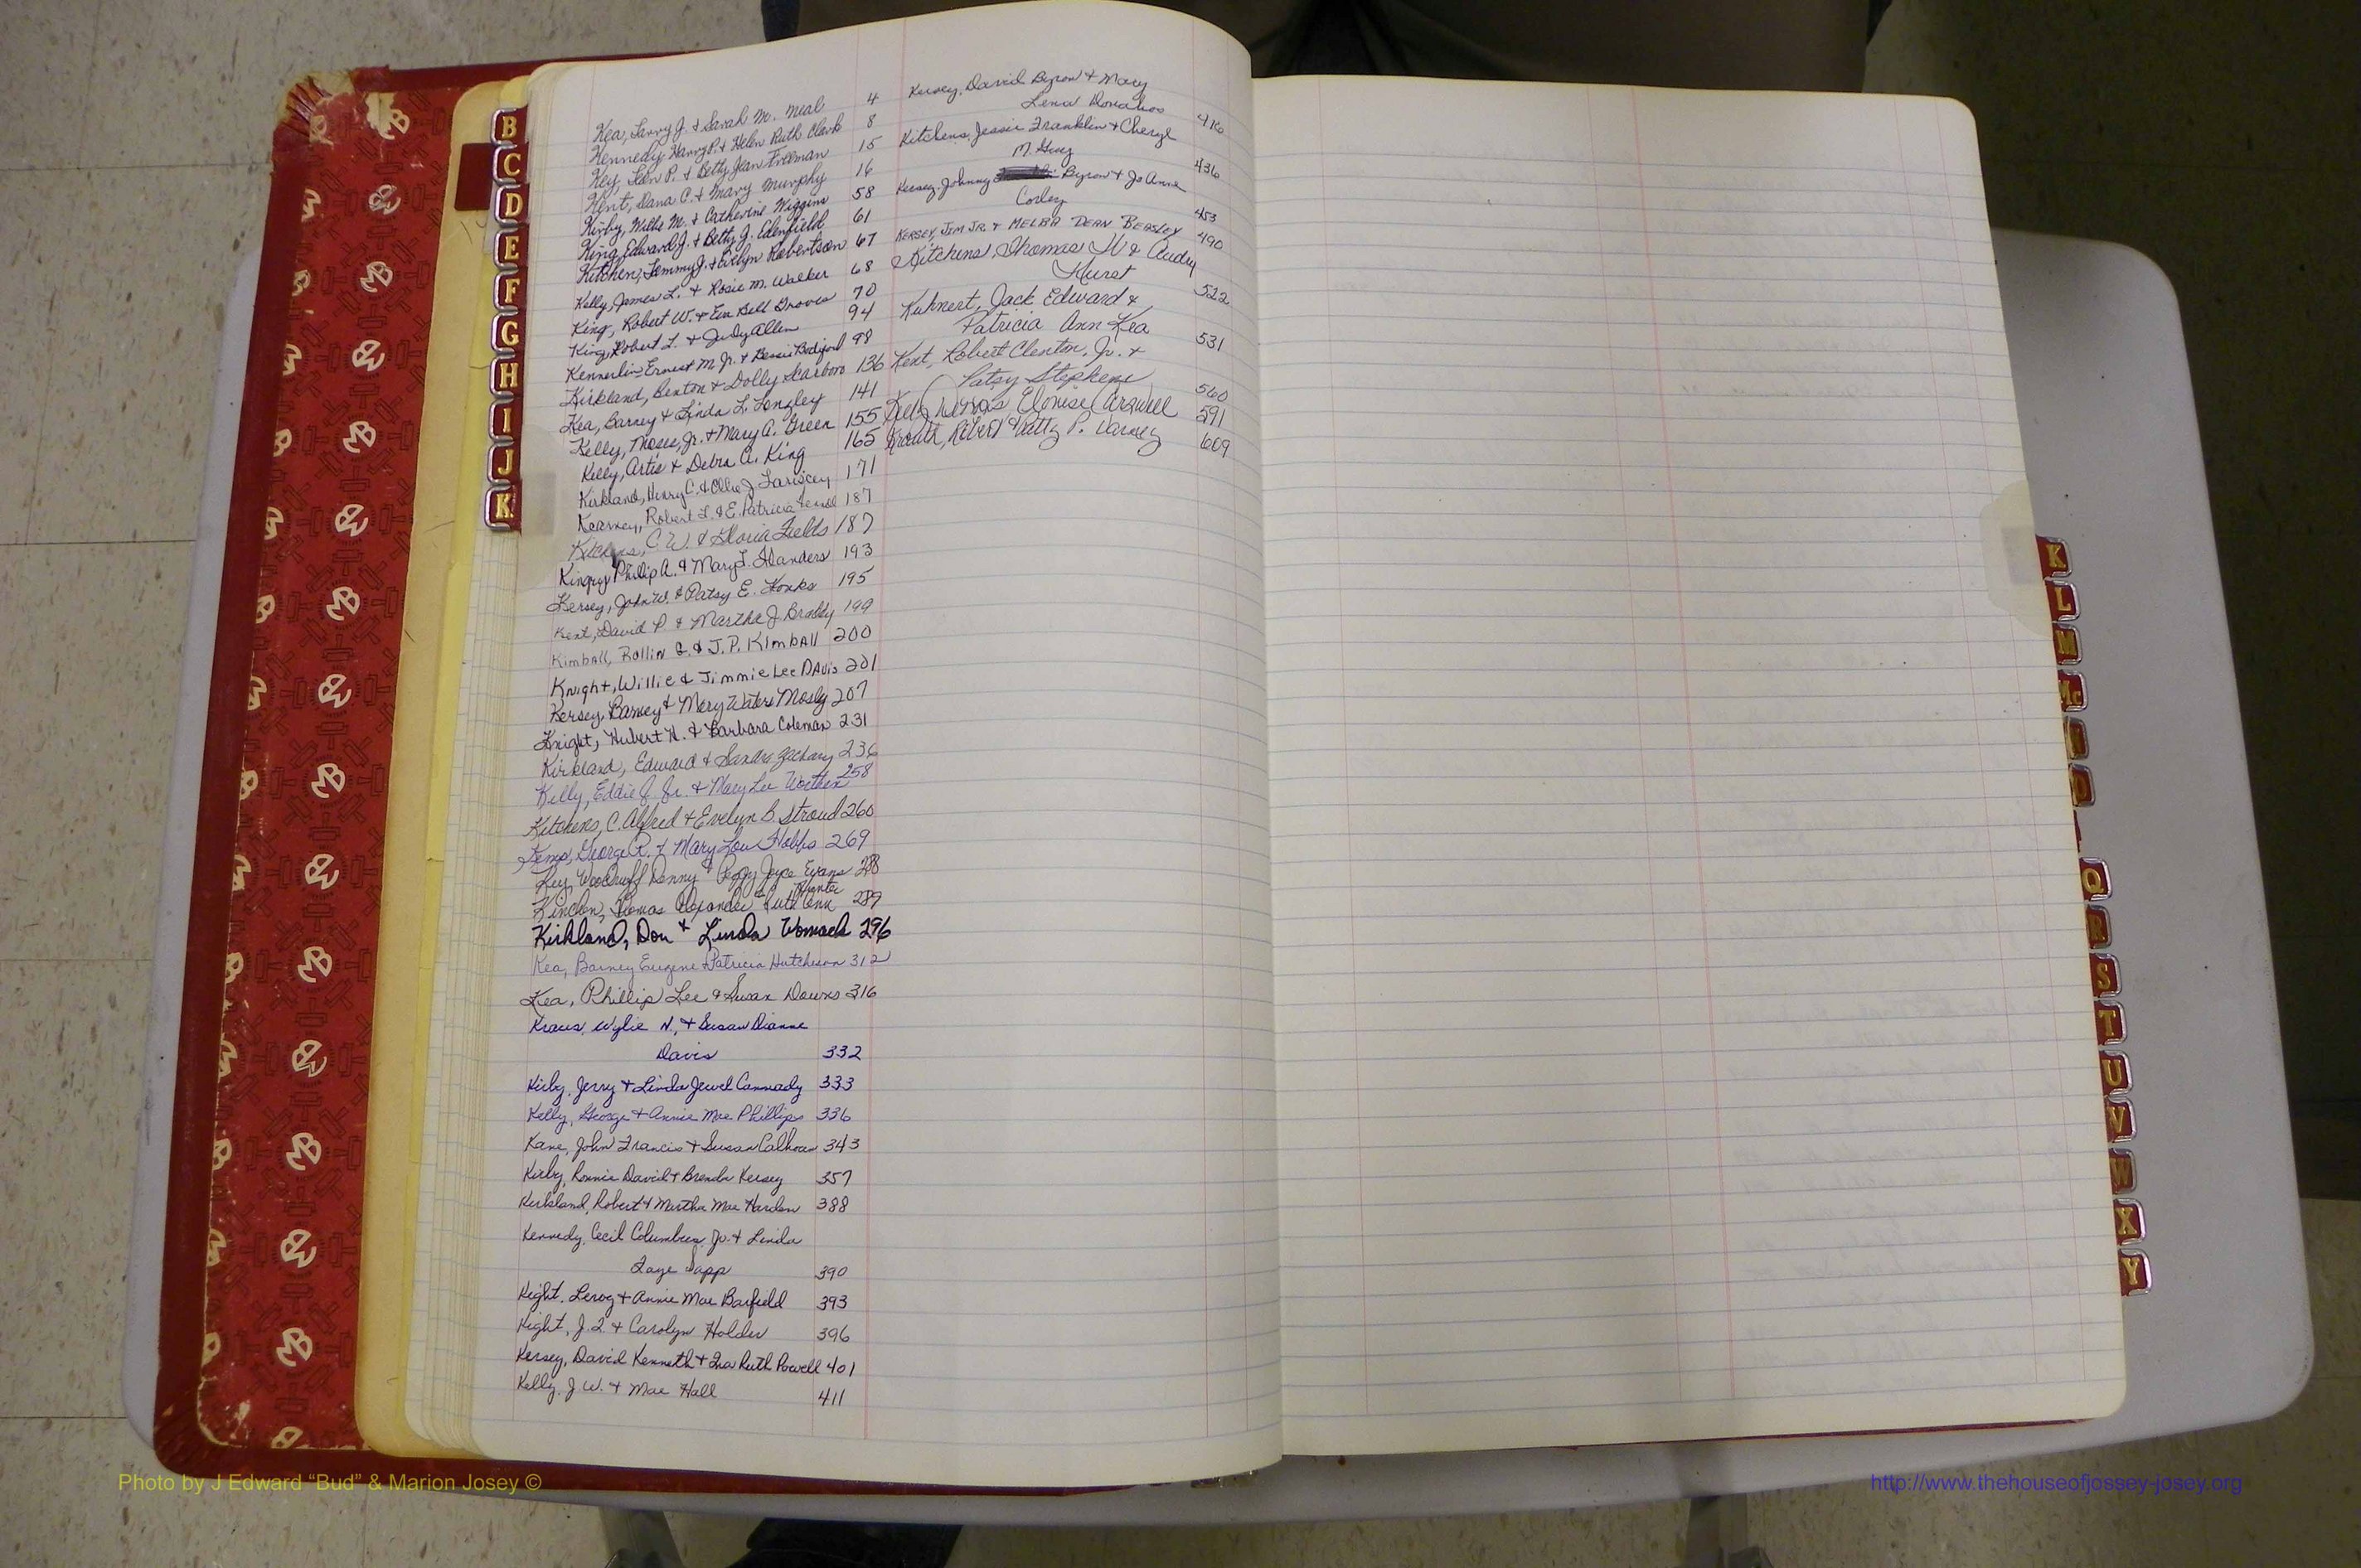 B
C
D
E
F
G
H
I
J
K
Kea, Larry J. & Sarah M. Neal 4
Kennedy, Harry P. & Helen Ruth Clark 8
Key, Leon P. & Betty Jean Freeman 15
Kent, Dana C. & Mary Murphy 16
Kirby, Willie M. & Catherine Wiggins 58
King, Edward J. & Betty J. Edenfield 61
Kitchen, Jemmy J. & Evelyn Robertson 67
Kelly, James L. & Rosie M. Walker 68
King, Robert W. & Eva Bell Groves 70
King, Robert L. & Judy Allen 94
Kennerlin Ernest M. Jr. & Bessie Bodiford 98
Kirkland, Benton & Dolly Scarboro 136
Kea, Barney & Linda L. Longley 141
Kelly, Moses, Jr. & Mary A. Green 155
Kelly, Artis & Debra A. King 165
Kirkland, Henry C. & Ollie J. Lariscey 171
Kearney, Robert L. & E. Patricia 187
Kitchens, C. W. & Gloria Fields 187
Kingry, Philip A. & Mary F. Flanders 193
Kersey, John W. & Patsy E. Fonks 195
Kent, David P. & Martha J. Braddy 199
Kimball, Rollin G. & J. P. Kimball 200
Knight, Willie & Jimmie Lee Davis 201
Kersey, Barney & Mary Waters Mosley 207
Knight, Hubert H. & Barbara Coleman 231
Kirkland, Edward & Sandra Zachary 236
Kelly, Eddie J. Jr. & Mary Lee Worthen 258
Kitchens, C. Alfred & Evelyn B. Stroud 260
Kemp, George R. & Mary Lou Hobbs 269
Key, Woodruff Denny & Peggy Joyce Evans 288
Hunter
Kinchen, Thomas Alexander & Ruth Ann 289
Kirkland, Don & Linda Womack 296
Kea, Barney Eugene & Patricia Hutcheson 312
Kea, Phillip Lee & Susan Downs 316
Kraus, Wylie N., & Susan Dianne
Davis 332
Kirby, Jerry & Linda Jewel Cannady 333
Kelly, George & Annie Mae Phillips 336
Kane, John Francis & Susan Calhoun 343
Kirby, Ronnie David & Brenda Kersey 357
Kirkland, Robert & Martha Mae Harden 388
Kennedy, Cecil Columbus, Jr. & Linda
Faye Sapp 390
Kight, Leroy & Annie Mae Barfield 393
Kight, J. Q. & Carolyn Holder 396
Kersey, David Kenneth & Iva Ruth Powell 401
Kelly, J. W. & Mae Hall 411
Kersey, David Byron & Mary
Lena Donahoo 416
Kitchens, Jessie Franklin & Cheryl
M. 436
Kersey, Johnny Byron & Jo Anne
Corley 453
KERSEY, JIM JR. & MELBA DEAN BEASLEY 490
Kitchens, Thomas W & Audry
Hurst 522
Kuhnert, Jack Edward &
Patricia Ann Kea 531
Kent, Robert Clenton, Jr. &
Patsy Stephens 560
Kelly Elouise Carswell 591
Robert & Patty P. Varney 609
K
L
M
Mc
Q
R
S
T
U
V
W
X
Y
Photo by J Edward “Bud” & Marion Josey ©
http://www.thehouseofjossey-josey.org